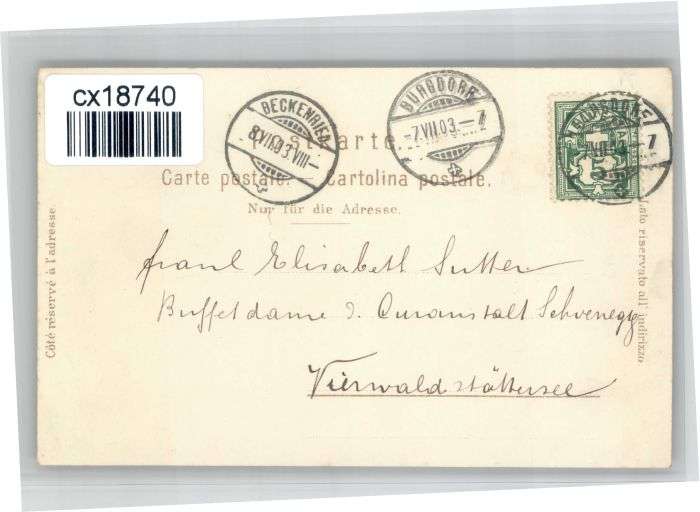 cx18740
BECKENRIED
8.VII.03.VIII—
BURGDORF
-7.VII.03.—7
BURGDORF
VII.03.—7
Postkarte.
Carte postale. — Cartolina postale.
Nur für die Adresse.
Côté réservé à l'adresse.
Lato riservato all' indirizzo
Elisabeth Sutter
Buffetdame z. Curanstalt Schönegg
Vierwaldstättersee